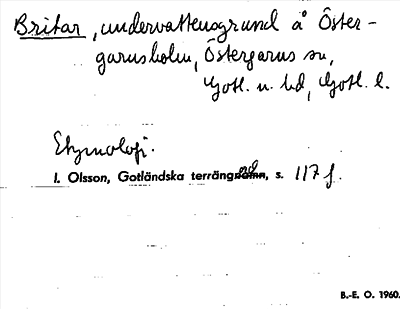 Britar, undervattensgrund å Öster-
garnsholm, Östergarns sn,
Gotl. n. hd, Gotl. l.
Etymologi.
I. Olsson, Gotländska terrängord, s. 117 f.
B.-E. O. 1960.